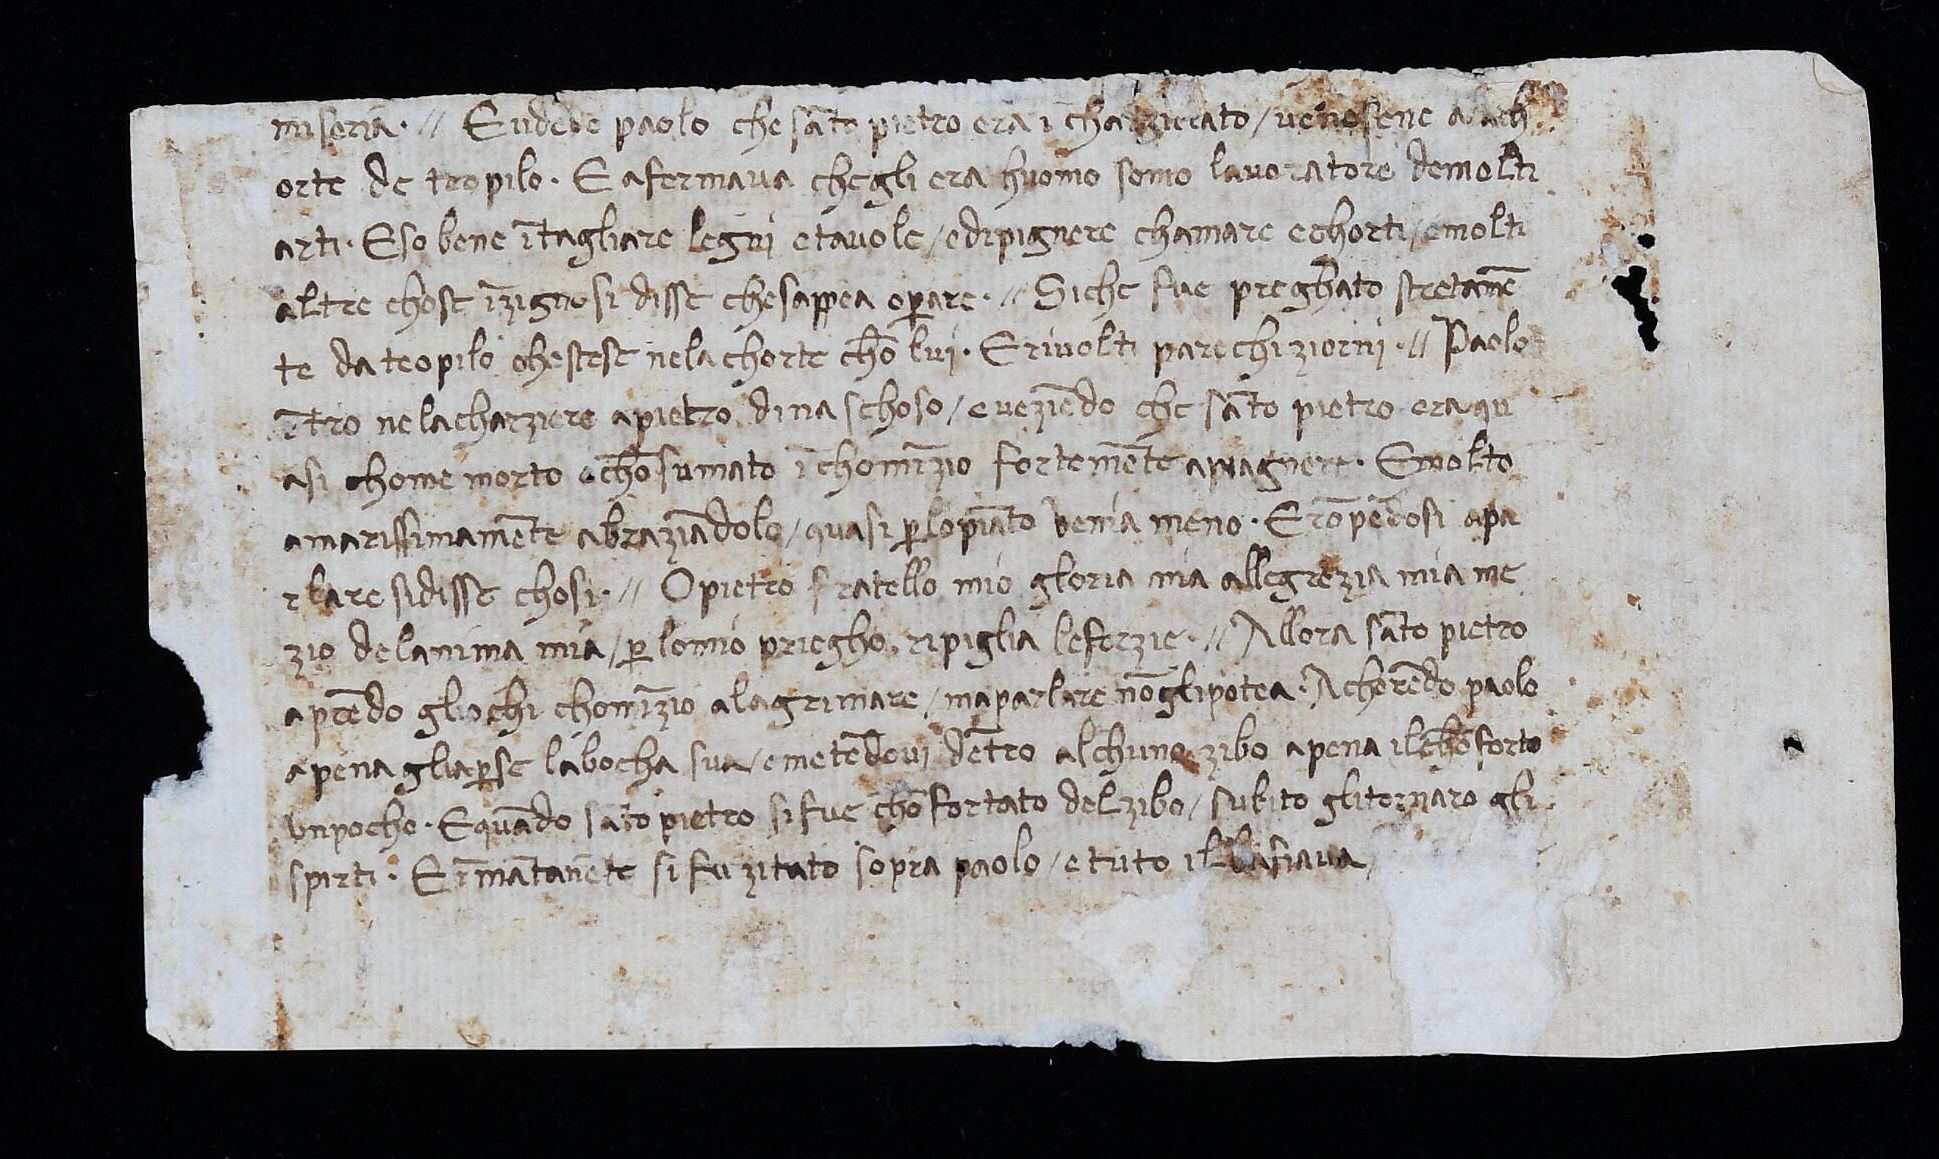 miseria · // E udēdo paolo che sāto pietro era ī charzierato / venesene a la ch
orte de teopilo · E afermava chegli era huomo somo lavoratore demolti
arti · E so bene ītagliare legni e tavole / e dipignere chamare e chorti / e molti
altre chose īzignosi disse che sapea op̄are · // Siche fue preghato stretamē
te da teopilo che stese ne la chorte chō lui · E rivolti parechi ziorni · // Paolo
ītro ne la charziere a pietro di naschoso / e veziēdo che sāto pietro era qu
asi chome morto e chōsumato ī chomīzio fortemēte a piagnere · E molto
amarissimamēte abraziādolo / quasi p̄ lo piāto venia meno · E rōpēdosi a pa
rlare si disse chosi · // O pietro fratello mio gloria mia allegrezia mia me
zio de lanima mia / p̄ lo mio priegho ripiglia le forzie · // Allora sāto pietro
aprēdo gliochi chomīzio a lagrimare / ma parlare nō gli potea · A chorēdo paolo
apena gli ap̄se la bocha sua / e metēdovi dētro alchuno zibo apena il chōforto
un pocho · E quādo sāto pietro si fue chōfortato del zibo / subito gli tornaro gli
spirti · E īmātanēte si fu zitato sopra paolo / e tuto il basiava /